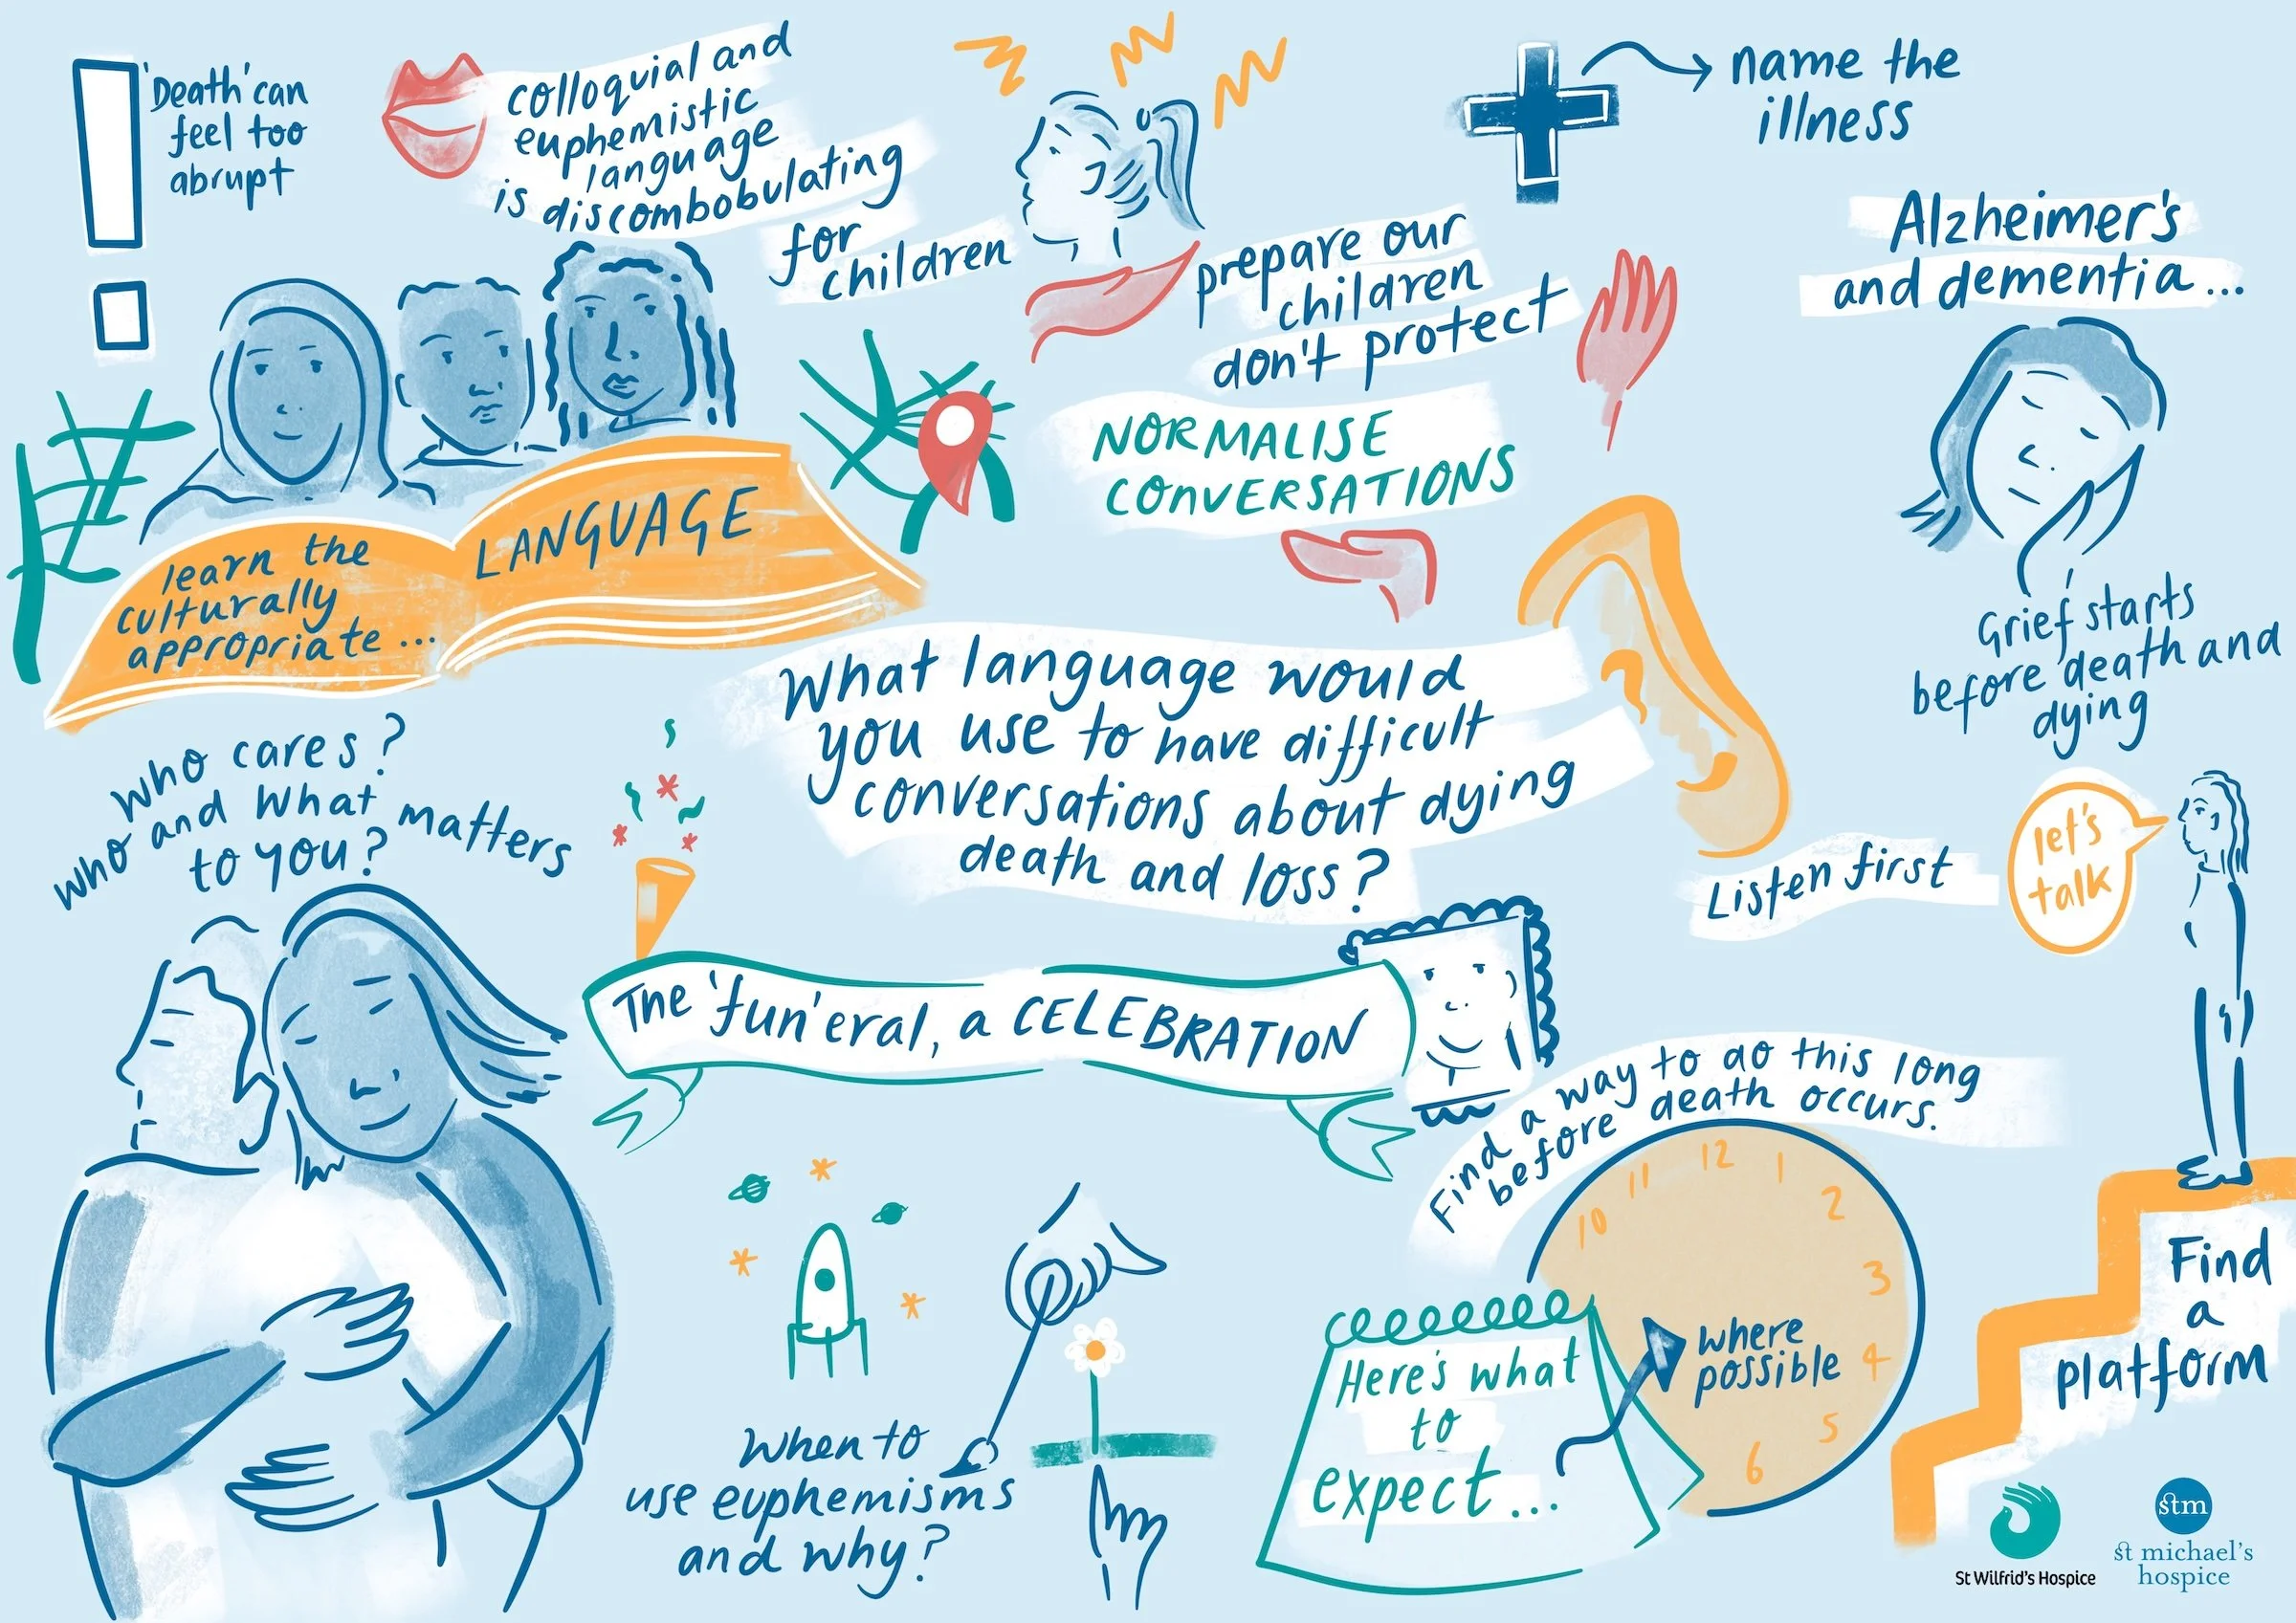 'Death' can
feel too
abrupt
colloquial and
euphemistic
language
is discombobulating
for
children
name the
illness
prepare our
children
don't protect
Alzheimer's
and dementia...
NORMALISE
CONVERSATIONS
learn the
culturally
appropriate...
LANGUAGE
Grief starts
before death and
dying
What language would
you use to have difficult
conversations about dying
death and loss?
who cares?
who and what matters
to you?
Listen first
let's
talk
The 'fun'eral, a CELEBRATION
Find a way to do this long
before death occurs.
10
11
12
1
2
3
4
5
6
Here's what
to
expect...
where
possible
Find
a
platform
When to
use euphemisms
and why?
St Wilfrid's Hospice
stm
st michael's
hospice